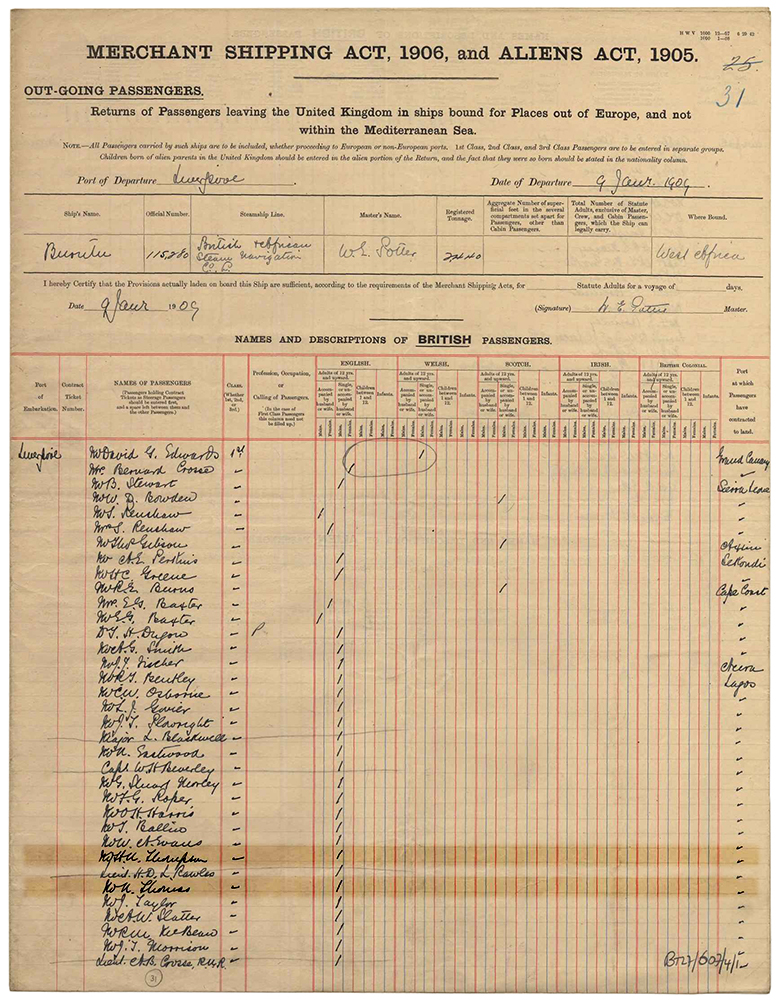 H W V 1000 12—07 8 29 63
2000 1—08
MERCHANT SHIPPING ACT, 1906, and ALIENS ACT, 1905.
25
31
OUT-GOING PASSENGERS.
Returns of Passengers leaving the United Kingdom in ships bound for Places out of Europe, and not
within the Mediterranean Sea.
NOTE.—All Passengers carried by such ships are to be included, whether proceeding to European or non-European ports. 1st Class, 2nd Class, and 3rd Class Passengers are to be entered in separate groups.
Children born of alien parents in the United Kingdom should be entered in the alien portion of the Return, and the fact that they were so born should be stated in the nationality column.
Port of Departure Liverpool. Date of Departure 9 Janr. 1909.
Ship's Name. Official Number. Steamship Line. Master's Name. Registered Tonnage. Aggregate Number of superficial feet in the several compartments set apart for Passengers, other than Cabin Passengers. Total Number of Statute Adults, exclusive of Master, Crew, and Cabin Passengers, which the Ship can legally carry. Where Bound.
115280 British & African Steam Navigation Co. W. E. Potter West Africa
I hereby Certify that the Provisions actually laden on board this Ship are sufficient, according to the requirements of the Merchant Shipping Acts, for Statute Adults for a voyage of days,
Date 9 Janr 1909 (Signature) Master.
NAMES AND DESCRIPTIONS OF BRITISH PASSENGERS.
Port of Embarkation. Contract Ticket Number. NAMES OF PASSENGERS (Passengers holding Contract Tickets as Steerage Passengers should be entered first, and a space left between them and the other Passengers.) CLASS. (Whether 1st, 2nd, or 3rd.) Profession, Occupation, or Calling of Passengers. (In the case of First Class Passengers this column need not be filled up.) ENGLISH. WELSH. SCOTCH. IRISH. BRITISH COLONIAL. Port at which Passengers have contracted to land.
Adults of 12 yrs. and upward. Adults of 12 yrs. and upward. Adults of 12 yrs. and upward. Adults of 12 yrs. and upward. Adults of 12 yrs. and upward.
Accompanied by husband or wife. Single, or unaccompanied by husband or wife. Children between 1 and 12. Infants.
Males. Females. Males. Females. Males. Females.
Liverpool Mr David G. Edwards 1st 1 Grand Canary
Mr Bernard Crosse " 1 "
Mr B. Stewart " 1 Sierra Leone
Mr W. D. Bowden " 1 "
Mr S. Renshaw " 1 "
Mrs S. Renshaw " 1 "
Mr Thos Gibson " 1 Axim
Mr A. E. Perkins " 1 Sekondi
Mr H C. Greene " 1 "
Mr R. E. Burns " 1 Cape Coast
Mrs E G. Baxter " 1 "
Mr E G. Baxter " 1 "
" 1 "
Mr A. G. Smith " 1 "
Mr J. J. Vischer " 1 Accra
Mr R. J. Bentley " 1 Lagos
Mr C. W. Osborne " 1 "
Mr L. J. " 1 "
Mr J. T. Plowright " 1 "
Major L. Blackwell " 1 "
Mr A. Eastwood " 1 "
Capt. W. H Beverley " 1 "
Mr G. Stuart Morley " 1 "
Mr F. G. Roper " 1 "
Mr O H. Harris " 1 "
Mr J. " 1 "
Mr W. A. Evans " 1 "
Mr H. A. Thompson " 1 "
Lieut. H. D. L. Rawles " 1 "
Mr A. Thomas " 1 "
Mr J. Taylor " 1 "
Mr A. W. Slatter " 1 "
Mr R. M. McBean " 1 "
Mr J. T. Morrison " 1 "
Lieut. A. B. Crosse, R.N.R. " 1 "
31
BT27/607/4/1